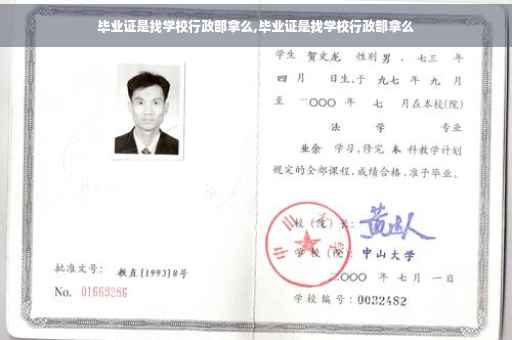 毕业证是找学校行政部拿么,毕业证是找学校行政部拿么
学生 贺文龙 性别 男 、七三 年
四 月 日生,于 九七 年 九 月
至 二〇〇〇 年 七 月在本校(院)
法 学 专业
业余 学习,修完 本 科教学计划
规定的全部课程,成绩合格,准予毕业。
校(院)长:
学校(院): 中山大学
二〇〇〇 年 七 月 一 日
学校编号:0032482
批准文号: 教直[1993]8号
No. 01669286